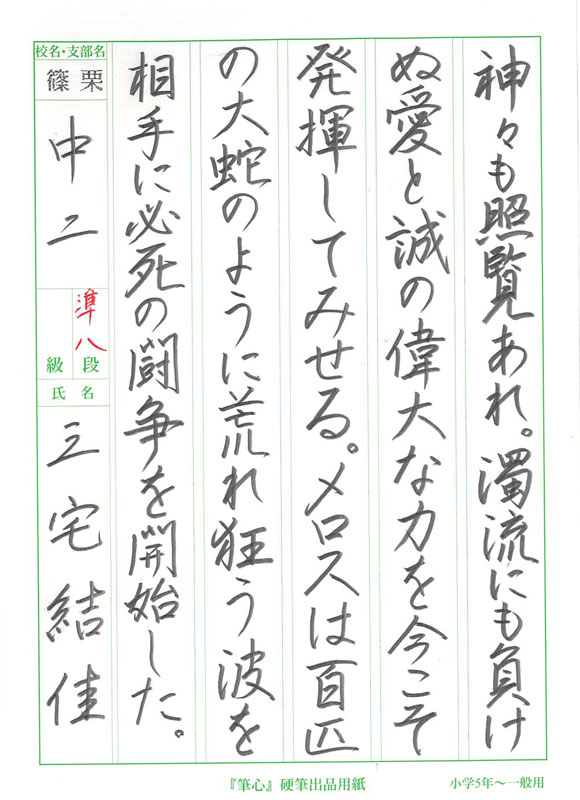 神々も照覧あれ。濁流にも負け
ぬ愛と誠の偉大な力を今こそ
発揮してみせる。メロスは百匹
の大蛇のように荒れ狂う波を
相手に必死の闘争を開始した。
校名・支部名
篠栗
中二
準八
段
級
氏名
三宅結佳
『筆心』硬筆出品用紙
小学5年〜一般用